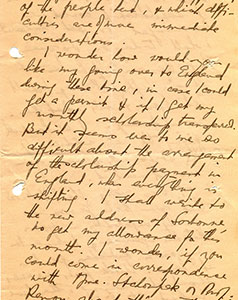 of the people here, & which diffi-
culties are/were immediate
considerations.
I wonder how would you
like my going over to England
during these time, in case I could
get a permit & if I get my
monthly scholarship transferred.
But it seems was to me so
difficult about the arrangement
of the scholarship payment in
England, when everything is
shifting. I shall write to
the new address of Sorbonne
to get my allowance for this
month. I wonder, if you
could come in correspondence
with Mme. & Prof.